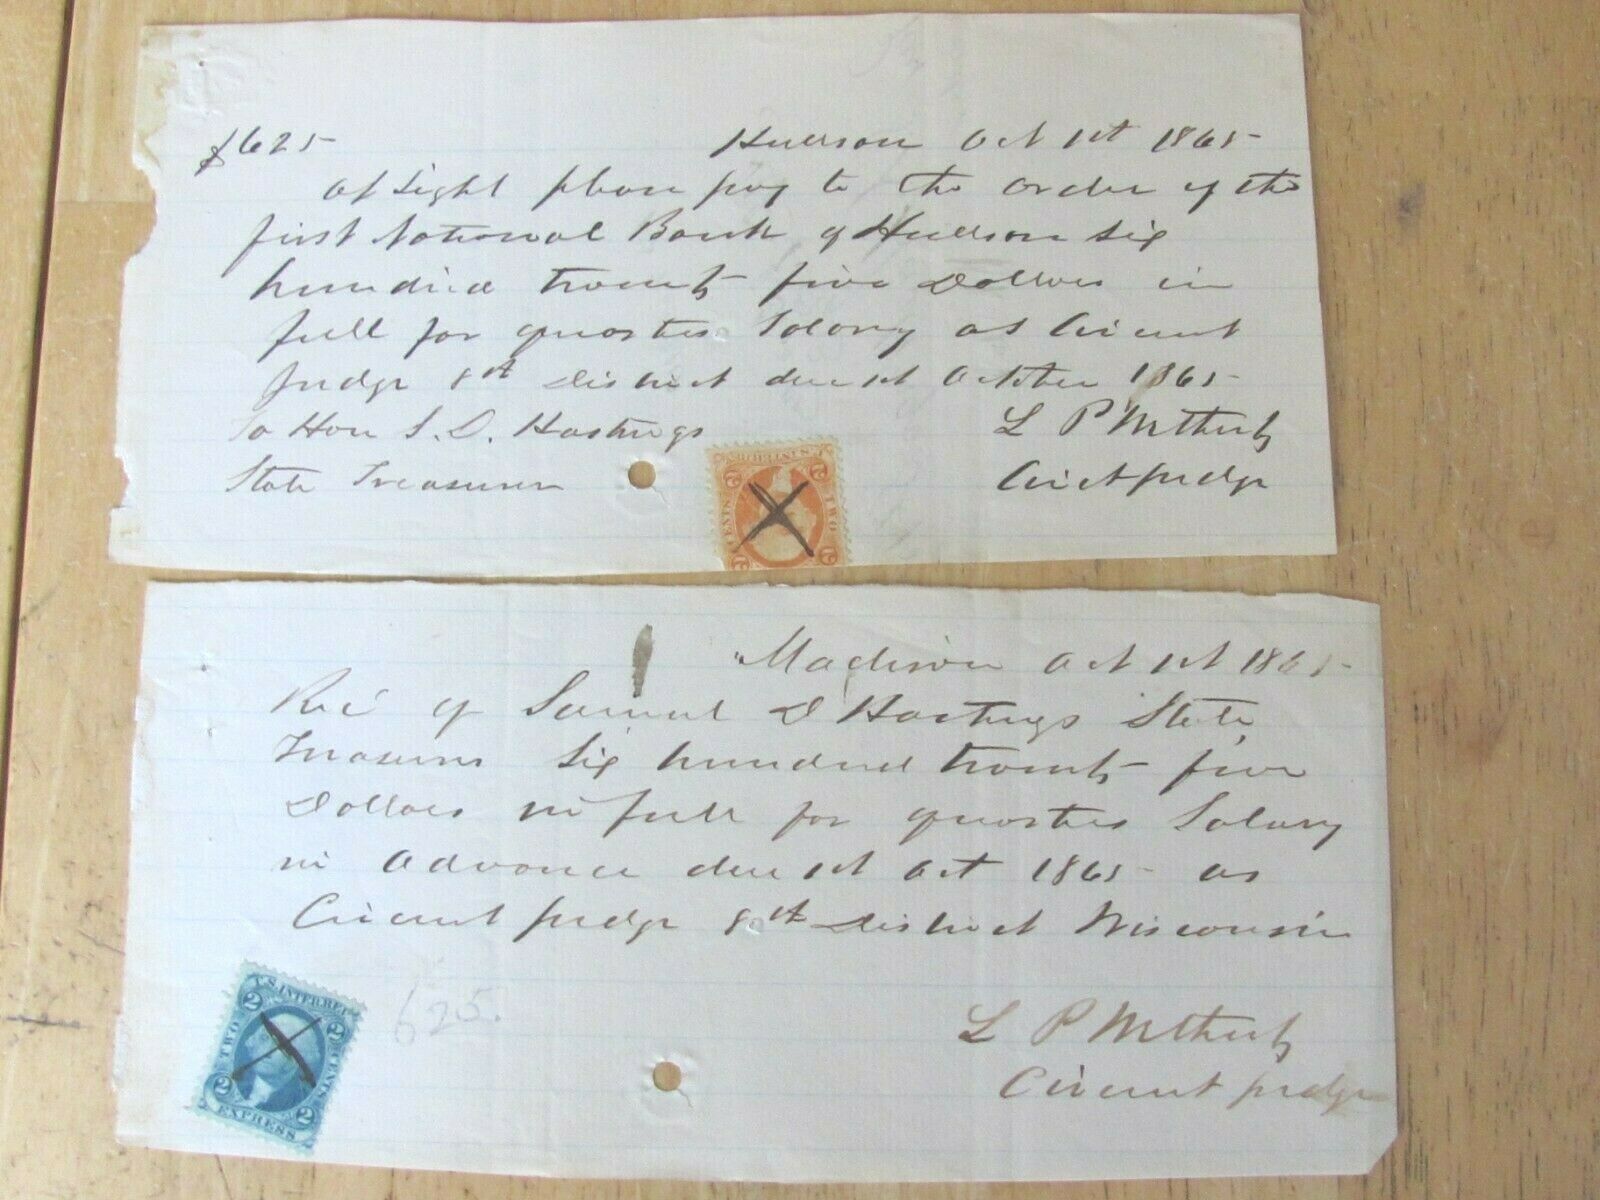 $625 Hudson Oct 1st 1865
At Sight please pay to the order of the
first National Bank of Hudson Six
hundred twenty five Dollars in
full for quarters Salary as Circuit
Judge 8th District due 1st October 1865
To Hon S. D. Hastings L P Wetherby
State Treasurer Circt Judge
2 2
TWO
CENTS
2 2
Madison Oct 1st 1865
Rec' of Samuel D Hastings State
Treasurer Six hundred twenty five
Dollars in full for quarters Salary
in advance due 1st Oct 1865 as
Circuit Judge 8th District Wisconsin
625.
L P Wetherby
Circuit Judge
U.S. INTER. REV.
2 2
TWO CENTS
2 2
EXPRESS